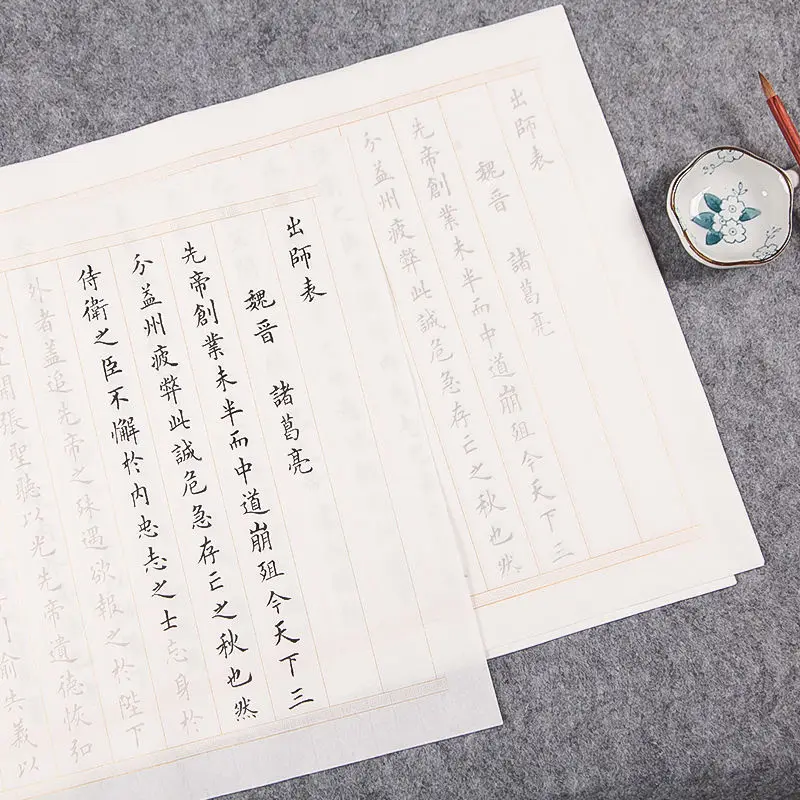 出師表
魏晉 諸葛亮
先帝創業未半而中道崩殂今天下三
分益州疲弊此誠危急存亡之秋也然
出師表
魏晉 諸葛亮
先帝創業未半而中道崩殂今天下三
分益州疲弊此誠危急存亡之秋也然
侍衛之臣不懈於內忠志之士忘身於
外者蓋追先帝之殊遇欲報之於陛下
開張聖聽以光先帝遺德恢弘
引喻失義以